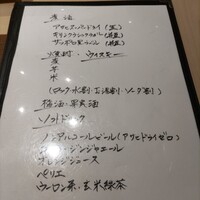 麦酒
アサヒスーパードライ(生)
キリンクラシックラガー(瓶)
サッポロ黒ラベル(瓶)
焼酎・ウイスキー
麦
芋
米
(ロック・水割り・お湯割り・ソーダ割り)
梅酒・果実酒
ソフトドリンク
ノンアルコールビール(アサヒドライゼロ)
ジンジャエール
オレンジジュース
ペリエ
ウーロン茶・玄米緑茶